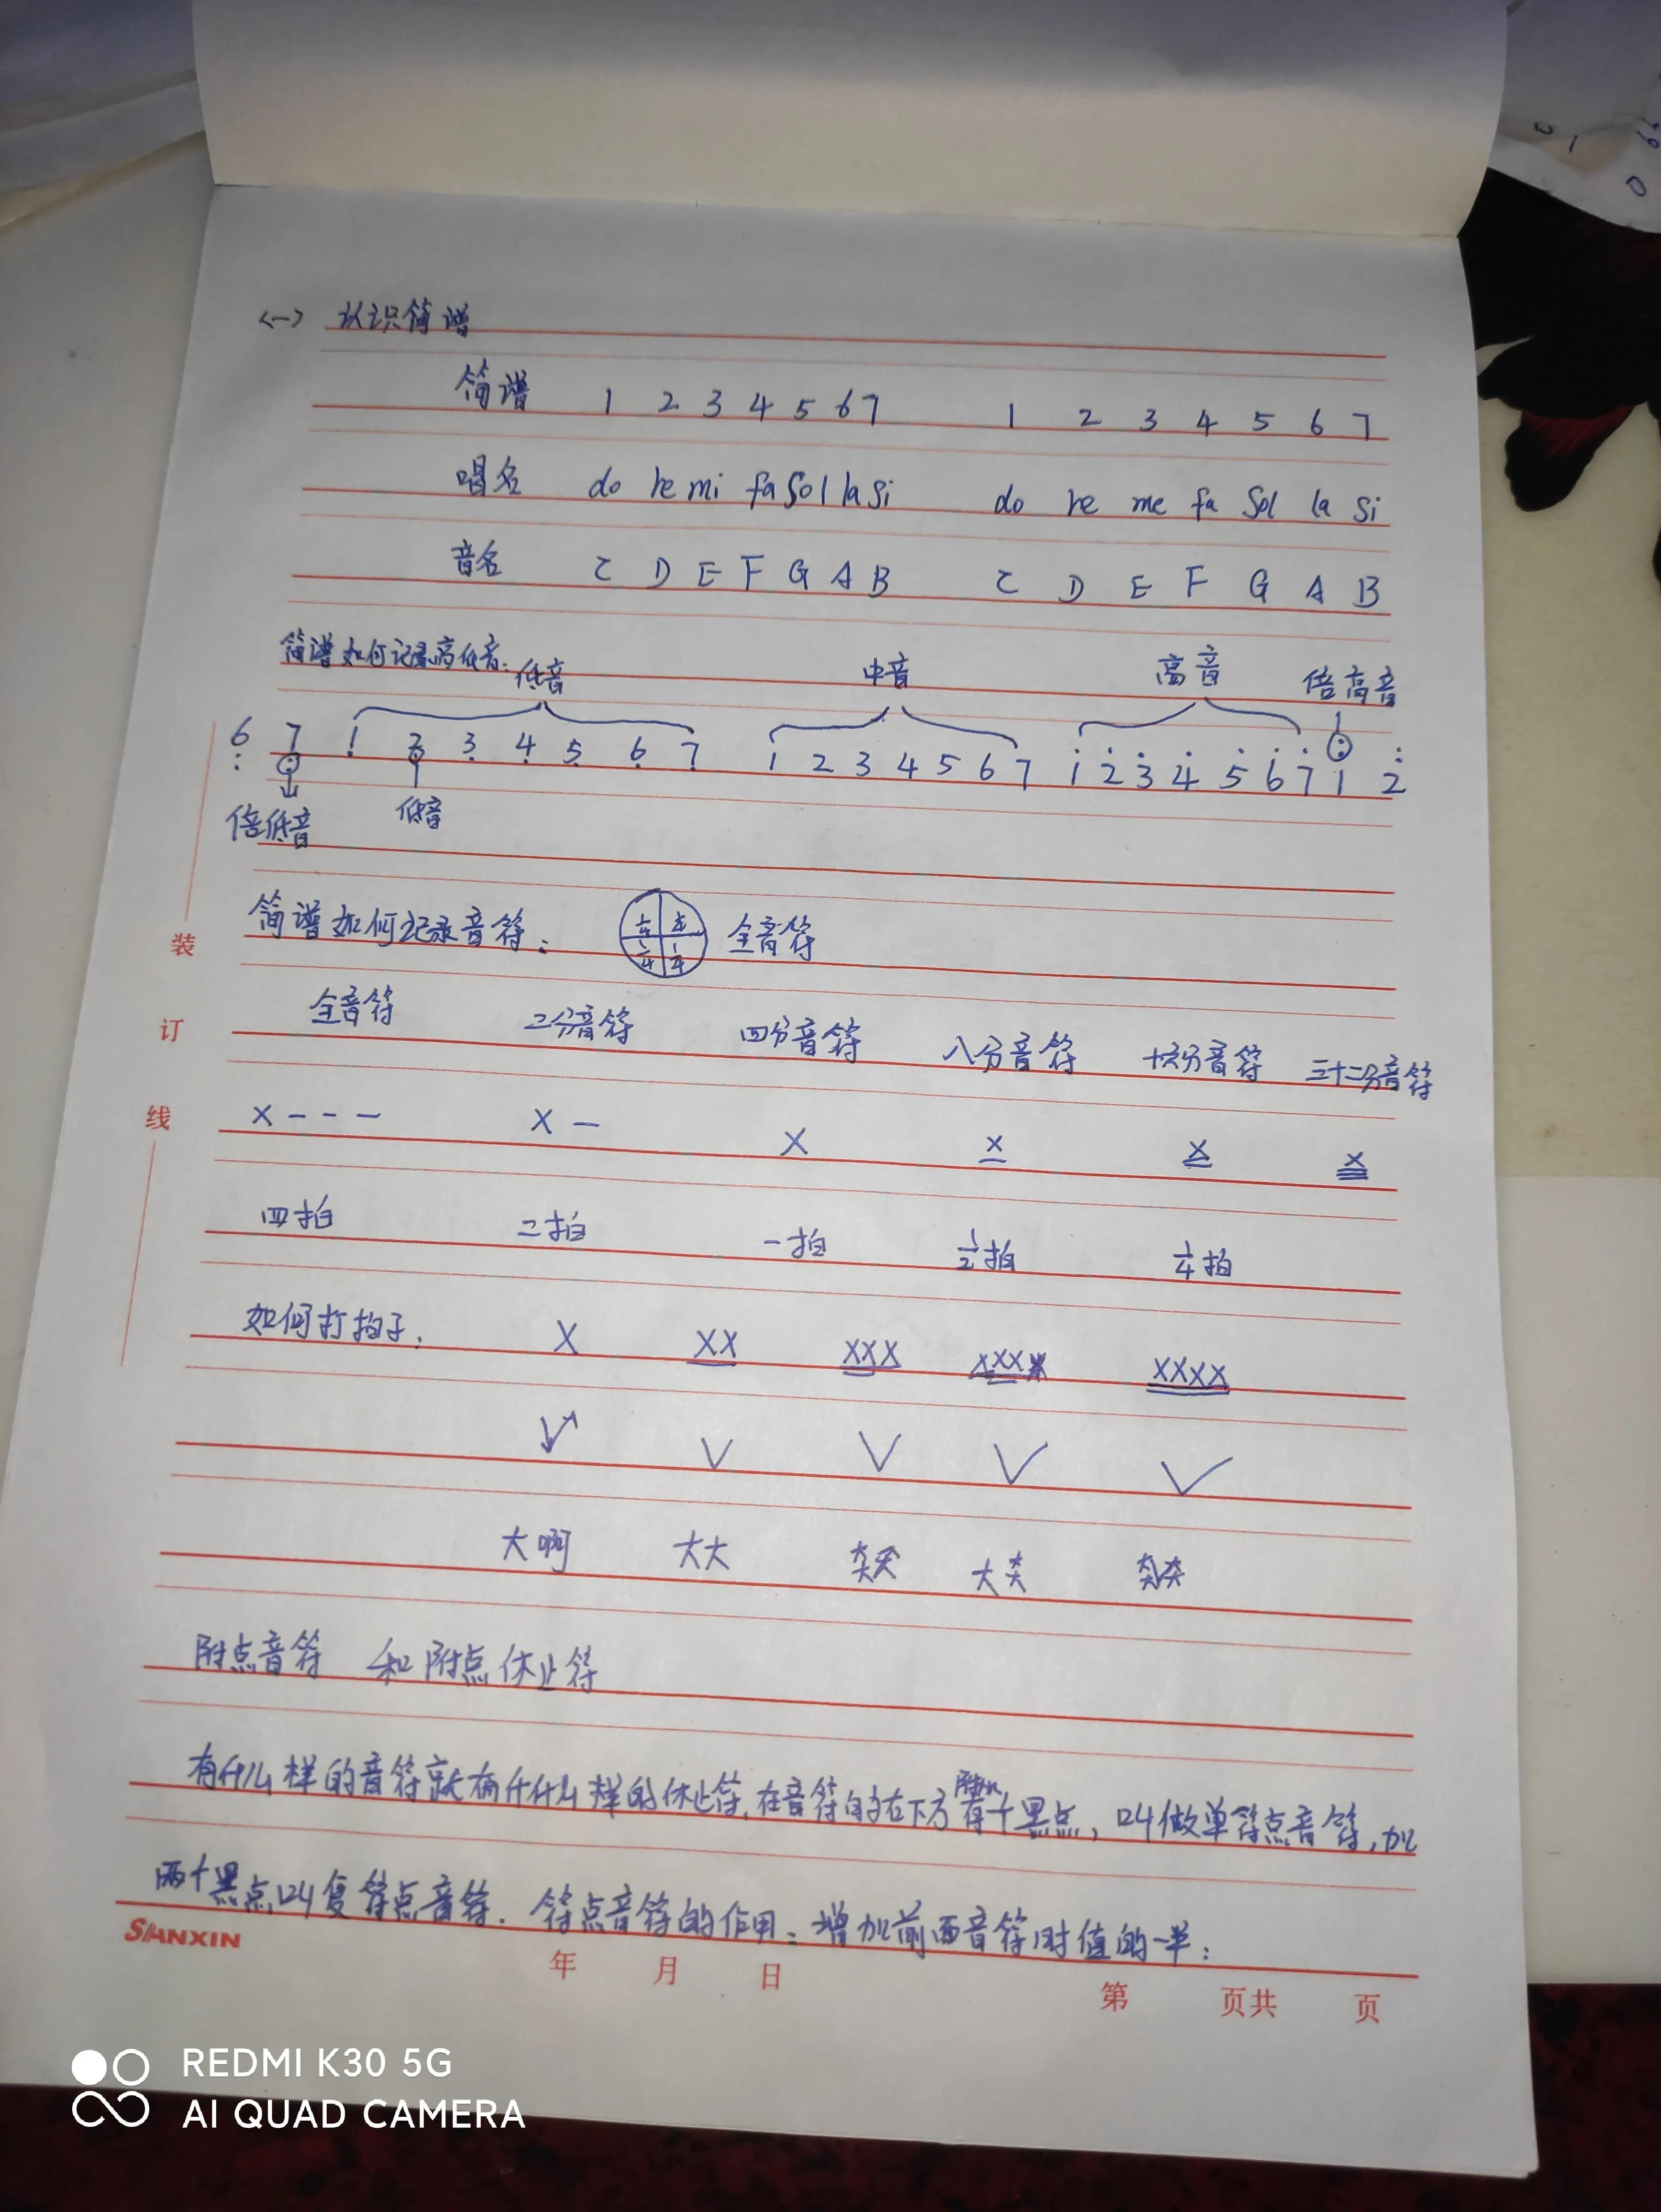 <一> 认识简谱
简谱 1 2 3 4 5 6 7 1 2 3 4 5 6 7
唱名 do re mi fa sol la si do re me fa sol la si
音名 C D E F G A B C D E F G A B
简谱如何记录高低音: 低音 中音 高音 倍高音
6 7 1 2 3 4 5 6 7 1 2 3 4 5 6 7 1 2 3 4 5 6 7 1 2
倍低音 低音
简谱如何记录音符: 1/4 1/4 1/4 1/4 全音符
全音符 二分音符 四分音符 八分音符 十六分音符 三十二分音符
X - - - X - X X X X
四拍 二拍 一拍 1/2拍 1/4拍
如何打拍子: X XX XXX XXX XXXX
大啊 大大 大大大 大大大 大大大大
附点音符 和附点休止符
有什么样的音符就有什什么样的休止符,在音符的右下方附加有个黑点,叫做单符点音符,加
两个黑点叫复符点音符. 符点音符的作用:增加前面音符时值的一半:
装
订
线
SIANXIN
年 月 日
第 页共 页
REDMI K30 5G
AI QUAD CAMERA